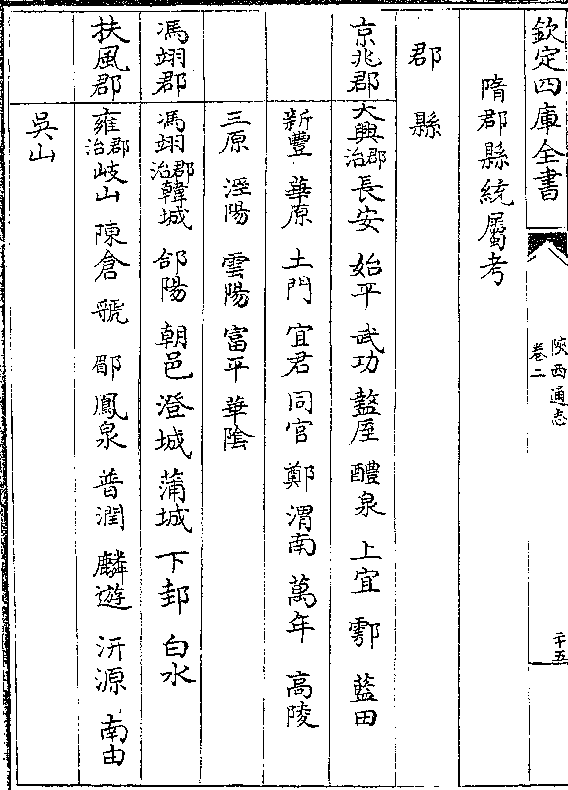 欽定四庫全書
陝西通志
卷二
二十五
隋郡縣統屬考
郡 縣
京兆郡 大興郡治 長安 始平 武功 盩厔 醴泉 上宜 鄠 藍田
新豐 華原 土門 宜君 同官 鄭 渭南 萬年 高陵
三原 涇陽 雲陽 富平 華陰
馮翊郡 馮翊郡治 韓城 郃陽 朝邑 澄城 蒲城 下邽 白水
扶風郡 雍郡治 岐山 陳倉 虢 郿 鳳泉 普潤 麟遊 汧源 南由
吳山